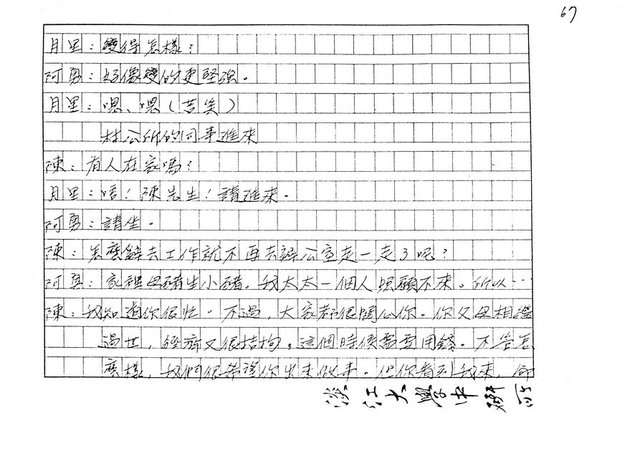 67
月里：變得怎樣？
阿勇：好像變的更堅強。
月里：嗯、嗯（苦笑）
村公所的同事進來
陳：有人在家嗎？
月里：唷！陳先生！請進來。
阿勇：請坐。
陳：怎麼辭去工作就不再去辦公室走一走了呢？
阿勇：家裡母豬生小豬，我太太一個人照顧不來。所以…
陳：我知道你很忙。不過，大家都很關心你。你父母相繼
過世，經濟又很拮拘，這個時候需要用錢。不管怎
麼樣，我們很希望你出來做事。但你看到我來，
淡江大學中研所